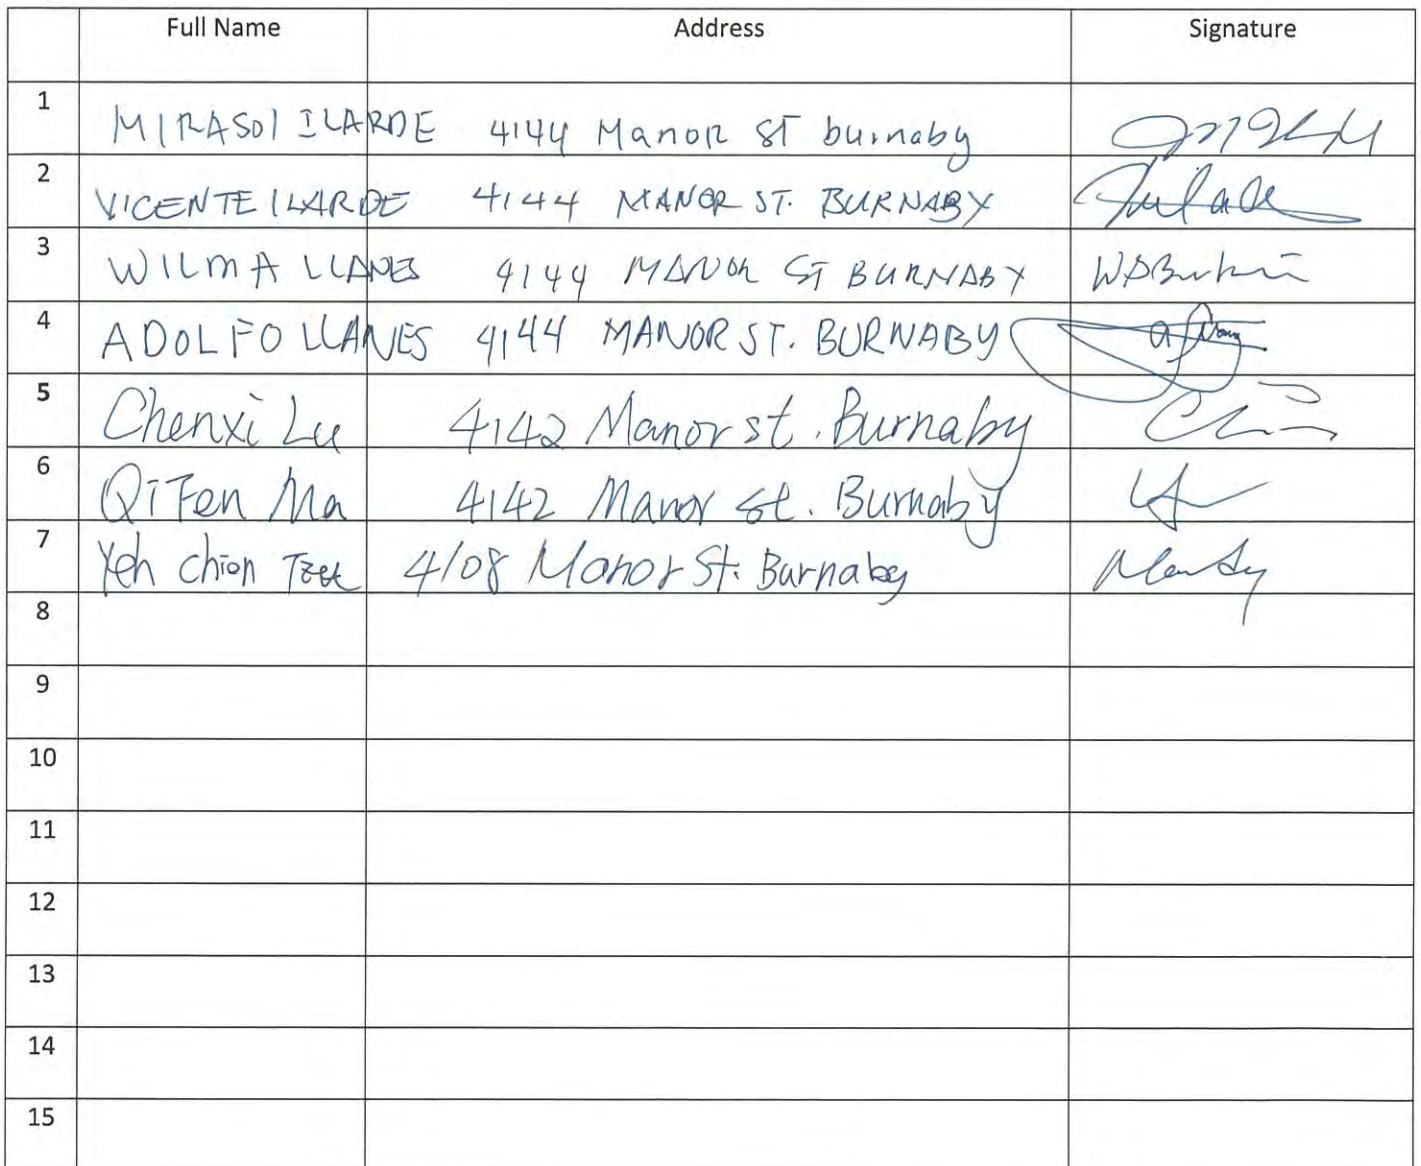 Full Name Address Signature
1 MIRASOl ILARDE 4144 Manor ST burnaby
2 VICENTE ILARDE 4144 MANOR ST. BURNABY
3 WILMA LLANES 4144 MANOR ST BURNABY
4 ADOLFO LLANES 4144 MANOR ST. BURNABY
5 Chenxi Lu 4142 Manor st. Burnaby
6 QiFen Ma 4142 Manor st. Burnaby
7 Yeh Chien 4108 Manor St. Burnaby
8
9
10
11
12
13
14
15